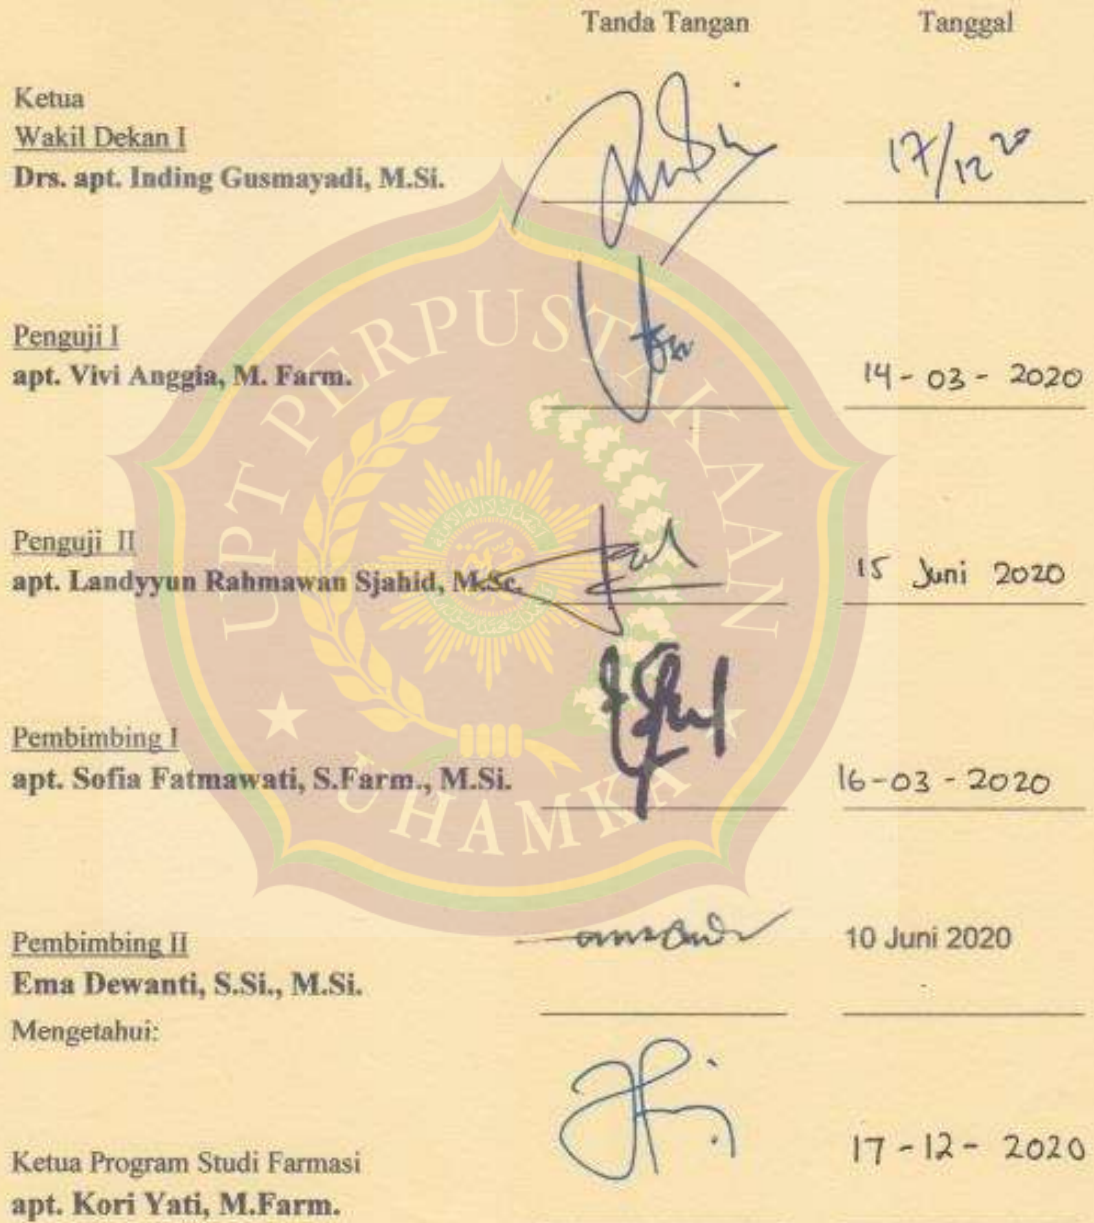 Tanda Tangan Tanggal
Ketua
Wakil Dekan I
Drs. apt. Inding Gusmayadi, M.Si.
17/12 20
Penguji I
apt. Vivi Anggia, M. Farm.
14 - 03 - 2020
Penguji II
apt. Landyyun Rahmawan Sjahid, M.Sc.
15 Juni 2020
Pembimbing I
apt. Sofia Fatmawati, S.Farm., M.Si.
16-03-2020
Pembimbing II
10 Juni 2020
Ema Dewanti, S.Si., M.Si.
Mengetahui:
Ketua Program Studi Farmasi
17-12- 2020
apt. Kori Yati, M.Farm.
UPT PERPUSTAKAAN
UHAMKA